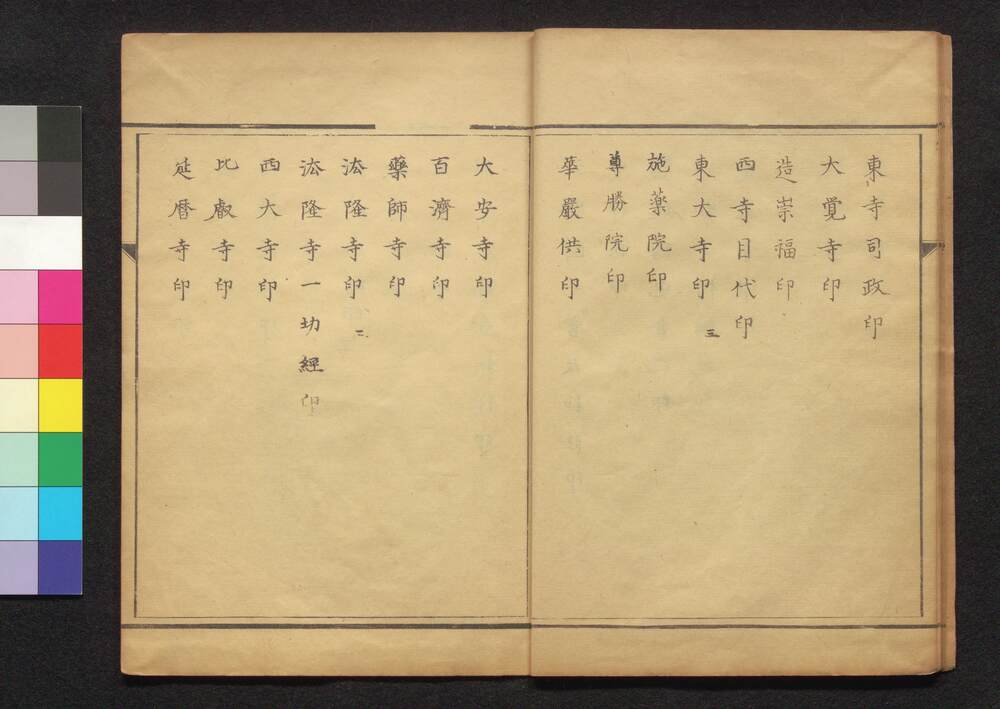 東寺司政印
大覺寺印
造崇福印
西寺目代印
東大寺印 三
施薬院印
尊勝院印
華嚴供印
大安寺印
百濟寺印
藥師寺印
法隆寺印 二
法隆寺一切經印
西大寺印
比叡寺印
延暦寺印